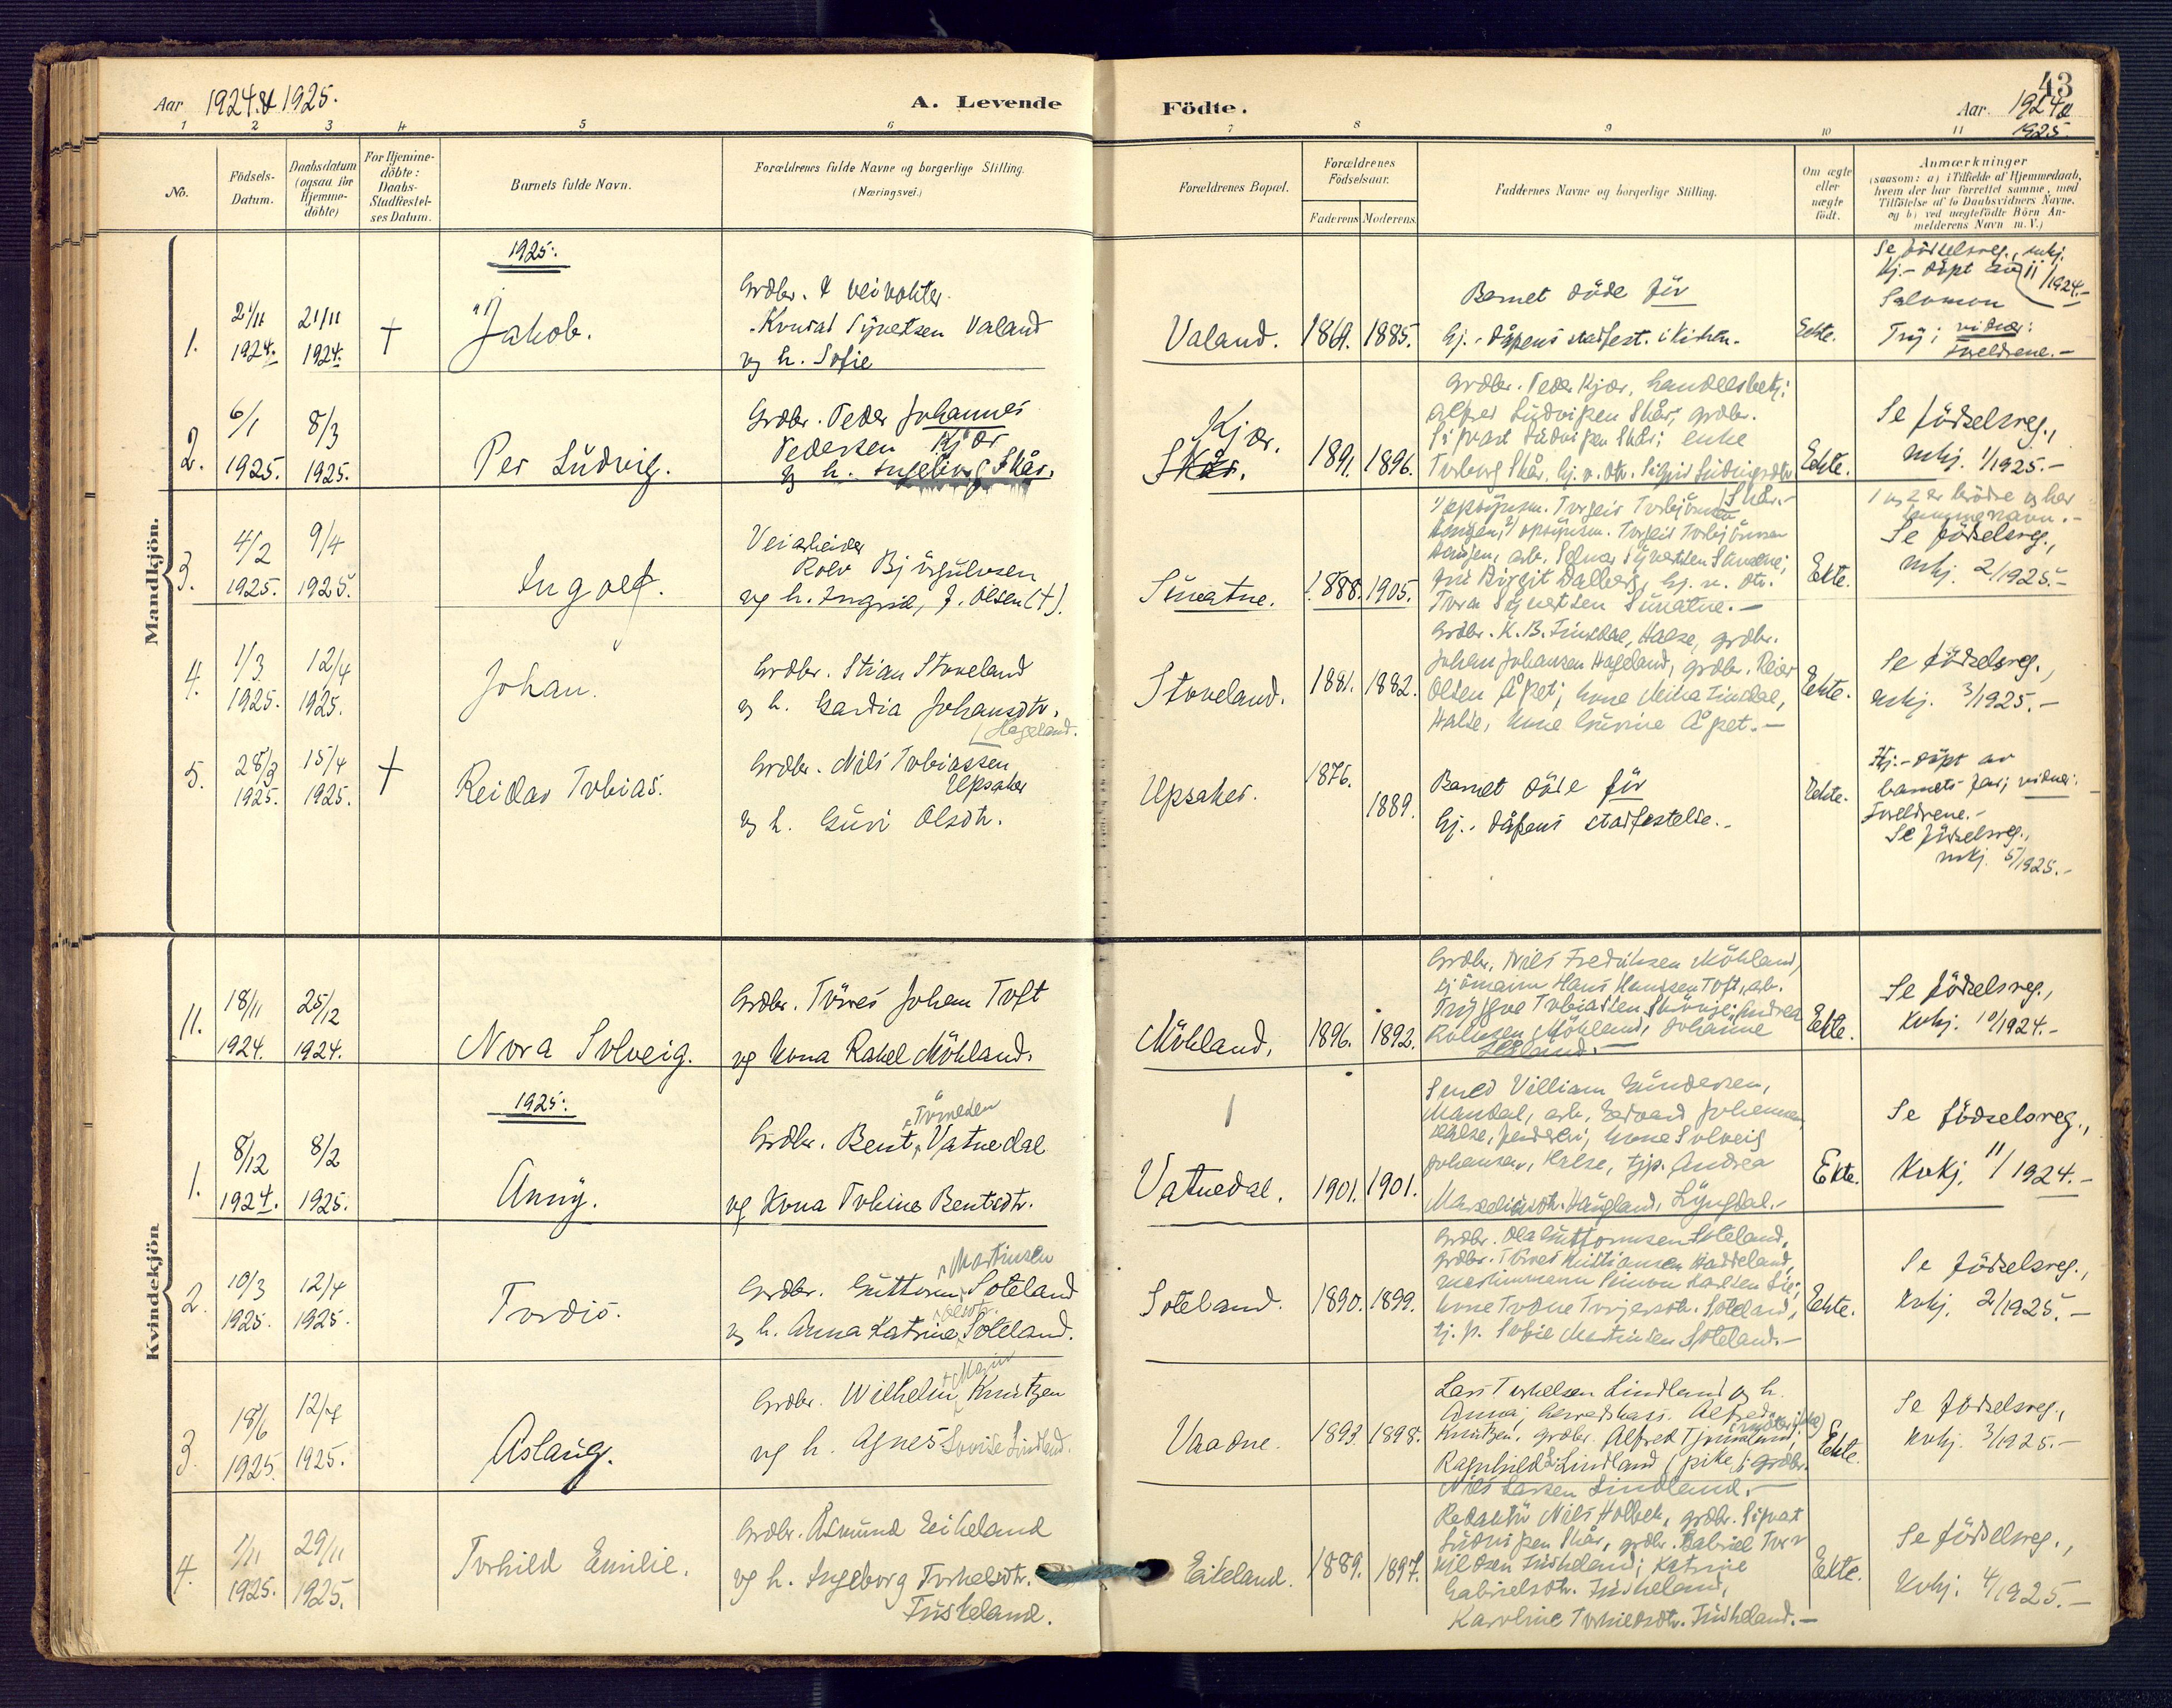 Aar 1924 & 1925.
A. Levende
Födte.
Aar. 1924 &
1925.
43
1 2 3 4 5 6 7 8 9 10 11
No.
Födsels-
Datum.
Daabsdatum
(ogsaa for
Hjemme-
döbte)
For Hjemme-
döbte:
Daabs-
Stadfæstel-
ses Datum.
Barnets fulde Navn.
Forældrenes fulde Navne og borgerlige Stilling.
(Næringsvei.)
Forældrenes Bopæl.
Forældrenes
Födselsaar.
Faderens. Moderens.
Faddernes Navne og borgerlige Stilling.
Om ægte
eller
uægte
födt.
Anmærkninger
(saasom: a) i Tilfælde af Hjemmedaab,
hvem der har forrettet samme, med
Tilföielse af to Daabsvidners Navne,
og b) ved uægtefödte Börn An-
melderens Navn m. V.)
Mandkjön.
1925.
1.
21/11
1924.
21/11
1924.
†
Jakob.
Grdbr. & veivokter
Konrad Syvertsen Valand
og h. Sofie
Valand.
1864.
1885.
Barnet döde för
hj.-dåpens stadfest. i kirken.
Eekte.
Se födselsreg., mkj.
11/1924.-
Hj.-döpt av
Salomon
vidner:
foreldrene.-
2.
6/1
1925.
8/3
1925.
Per Ludvig.
Grdbr. Peder Johannes
Pedersen Kjær
og h. Ingeborg Skår.
Kjær.
Skår.
1891.
1896.
Grdbr. Peder Kjær, handelsbetj.
Alfred Ludvigsen Skår, grdbr.
Sigvart Ludvigsen Skår; enke
Torborg Skår, hj. v. dtr. Sigrid Ludvigsdtr.
Skår.-
Eekte.
Se födselsreg.,
mkj. 1/1925.-
3.
4/2
1925.
9/4
1925.
Ingolf.
Veiarbeider
Rolv Bjørgulvsen
og h. Ingrid, f. Olsen (†).
1888.
1905.
Ekte.
1 og 2 er brödre og har
samme navn.-
Se födselsreg.,
mkj. 2/1925.-
4.
1/3
1925.
12/4
1925.
Johan.
Grdbr. Stian Stoveland
og h. Gardia Johansdtr.
Hageland.
Stoveland.
1881.
1882.
Grdbr. K. B. Tinsdal, Halse, grdbr.
Johan Johansen Hageland, grdbr. Reier
Olsen Åpet; kone Mina Tinsdal,
Halse, kone Gurine Åpet.-
Eekte.
Se födselsreg.,
mkj. 3/1925.-
5.
28/3
1925.
15/4
1925.
†
Reidar Tobias.
Grdbr. Nils Tobiassen
Upsaker
og h. Guri Olsdtr.
Upsaker.
1876.
1889.
Barnet döde för
hj.-dåpens stadfestelse.-
Eekte.
Hj.-döpt av
barnets far; vidner:
foreldrene.-
Se födselsreg.,
mkj. 5/1925.-
Kvindekjön
11.
18/11
1924.
25/12
1924.
Nora Solveig.
Grdbr. Törres Johan Toft
og kona Rakel Möhland.
Möhland.
1896.
1892.
Grdbr. Nils Fredriksen Möhland,
sjömann Hans Hanssen Toft, arb.
Eekte.
Se födselsreg.,
Kvkj. 10/1924.-
1925.
1.
8/12
1924.
8/2
1925.
Anny.
Grdbr. Bent Vatnedal
og kona Tobine Bentsdtr.
Vatnedal.
1901.
1901.
Smed Villiam Gundersen,
Mandal, arb. Edvard Johansen,
Halse, kone Solveig
Johansen, Halse, tjp. Andrea
Haugland, Lyngdal.-
Ekte.
Se födselsreg.,
Kvkj. 11/1924.-
2.
10/3
1925.
12/4
1925.
Tordis.
Grdbr. Guttorm Martinsen Soteland
og h. Anna Katrine Olsdtr. Soteland.
Soteland.
1890.
1899.
Grdbr. Ola Guttormsen Soteland,
grdbr. Törres Kristiansen Haddeland,
kone Todne Torgersdtr. Soteland,
tj. p. Sofie Martinsen Soteland.-
Eekte.
Se födselsreg.,
Kvkj. 2/1925.-
3.
18/6
1925.
1925.
Aslaug.
Grdbr. Wilhelm Knutzen
og h. Agnes Lovise Lindland.
1893.
1898.
Lars Torkelsen Lindland og h.
Anna; herredskass. Alfred
Knutzen, grdbr. Alfred
Ragnhild Lindland (pike); grdbr.
Nils Larsen Lindland.-
Eekte.
Se födselsreg.,
Kvkj. 3/1925.-
4.
1/11
1925.
29/11
1925.
Torhild Emilie.
Grdbr. Asmund Eikeland
og h. Ingeborg Torkelsdtr.
Fuskeland.
Eikeland.
1889.
1897.
Redaktör Nils Holbek, grdbr. Sigvat
Ludvigsen Skår, grdbr. Gabriel Tor-
kildsen Fuskeland; Katrine
Gabrielsdtr. Fuskeland,
Karoline Torkildsdtr. Fuskeland.-
Ekte.
Se födselsreg.,
Kvkj. 4/1925.-